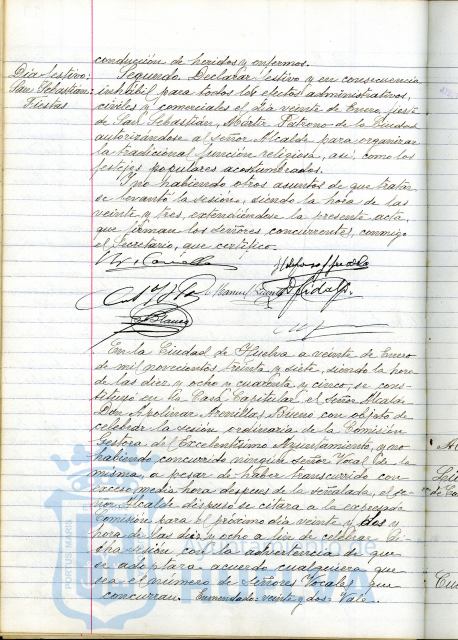 conducción de heridos y enfermos.
Dia festivo:
San Sebastian:
Fiestas
Segundo. Declarar festivo y en consecuencia
inhábil para todos los efectos administrativos,
civiles y comerciales el dia veinte de Enero,
de San Sebastián, Mártir Patrono de la Ciudad
autorizándose al señor Alcalde para organizar
la tradicional función religiosa, asi como los
festejos populares acostumbrados.
Y no habiendo otros asuntos de que tratar
se levantó la sesión, siendo la hora de las
veinte y tres, extendiéndose la presente acta,
que firman los señores concurrentes, conmigo
el Secretario, que certifico.
En la Ciudad de Huelva a veinte de Enero
de mil novecientos treinta y siete, siendo la hora
de las diez y ocho y cuarenta y cinco, se cons-
tituyó en la Casa Capitular el señor Alcalde
Don Apolinar Arenillas Bueno con objeto de
celebrar la sesión ordinaria de la Comisión
Gestora del Excelentisimo Ayuntamiento, y no
habiendo concurrido ningún señor Vocal de la
misma, a pesar de haber transcurrido con
exceso media hora despues de la señalada, el se-
ñor Alcalde dispuso se citara a la expresada
Comisión para el próximo dia veinte y dos y
hora de las diez y ocho a fin de celebrar di-
cha sesión con la advertencia de que
se adoptara acuerdo cualquiera que
sea el número de Señores Vocales que
concurran. Enmendado: veinte y dos Vale.
PORTUS MARIS
HUELVA